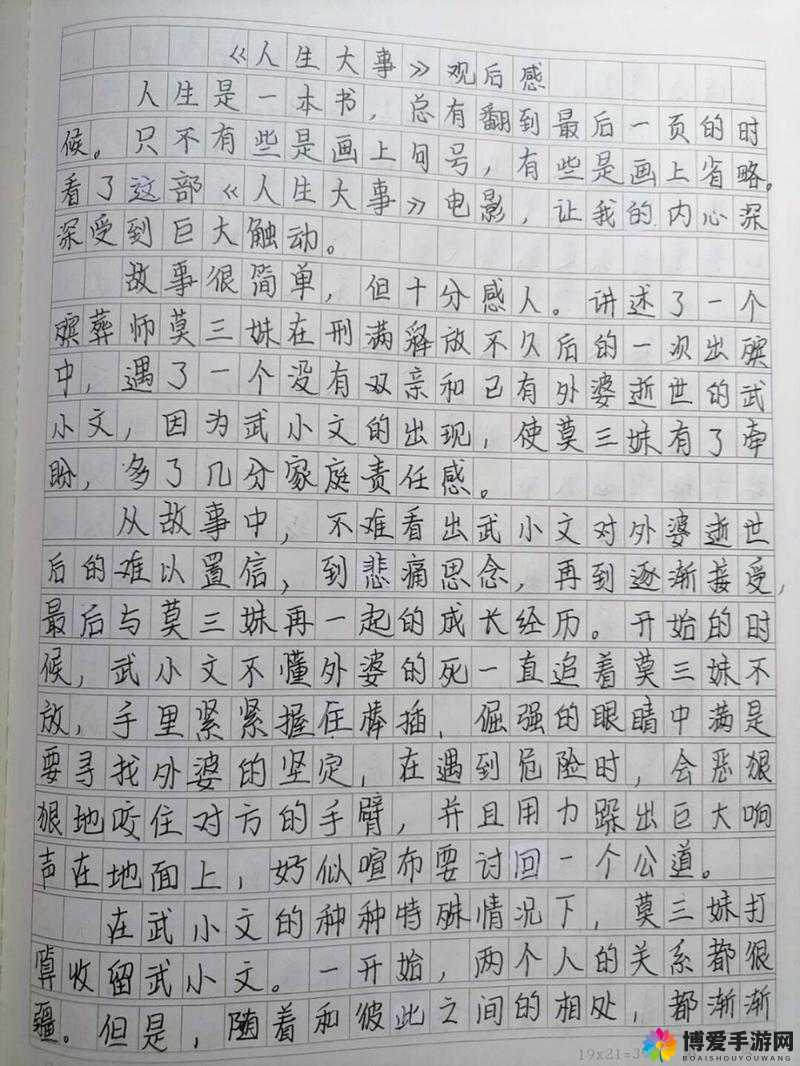 《人生大事》观后感
人生是一本书，总有翻到最后一页的时
候。只不有些是画上句号，有些是画上省略。
看了这部《人生大事》电影，让我的内心深
深受到巨大触动。
故事很简单，但十分感人。讲述了一个
殡葬师莫三妹在刑满释放不久后的一次出殡
中，遇了一个没有双亲和已有外婆逝世的武
小文，因为武小文的出现，使莫三妹有了牵
盼，多了几分家庭责任感。
从故事中，不难看出武小文对外婆逝世
后的难以置信，到悲痛思念，再到逐渐接受，
最后与莫三妹再一起的成长经历。开始的时
候，武小文不懂外婆的死一直追着莫三妹不
放，手里紧紧握住棒插，倔强的眼睛中满是
要寻找外婆的坚定，在遇到危险时，会恶狠
狠地咬住对方的手臂，并且用力跺出巨大响
声在地面上，好似喧布要讨回一个公道。
在武小文的种种特殊情况下，莫三妹打
算收留武小文。一开始，两个人的关系都很
疆。但是，随着和彼此之间的相处，都渐渐
19x21=3
博爱手游网
BOAISHOUYOUWANG